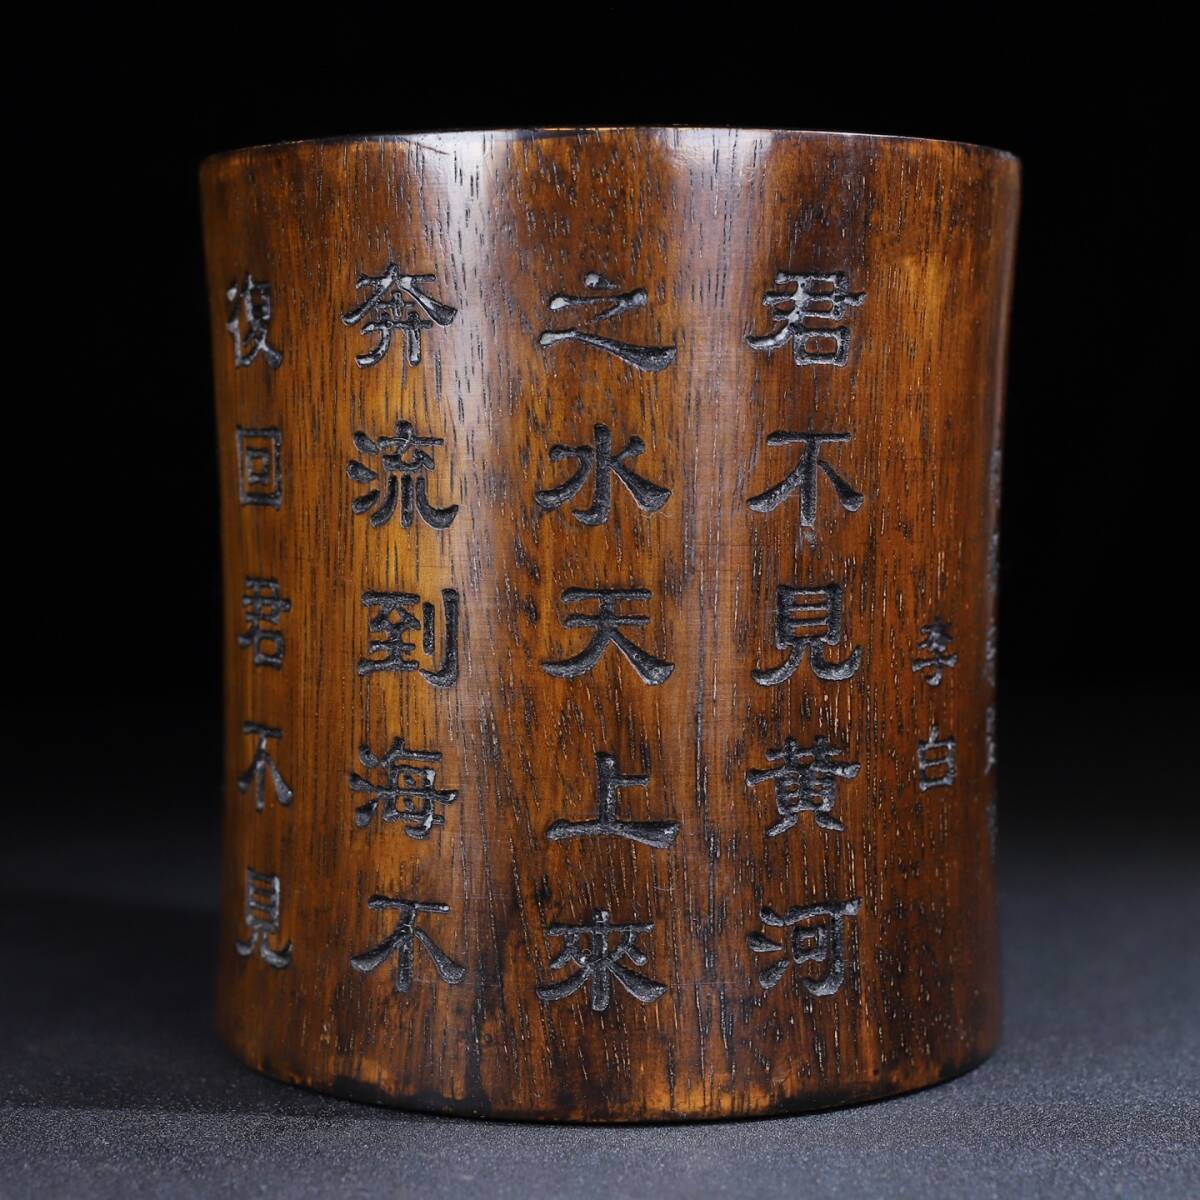 李白
君不見黃河
之水天上來
奔流到海不
復回君不見